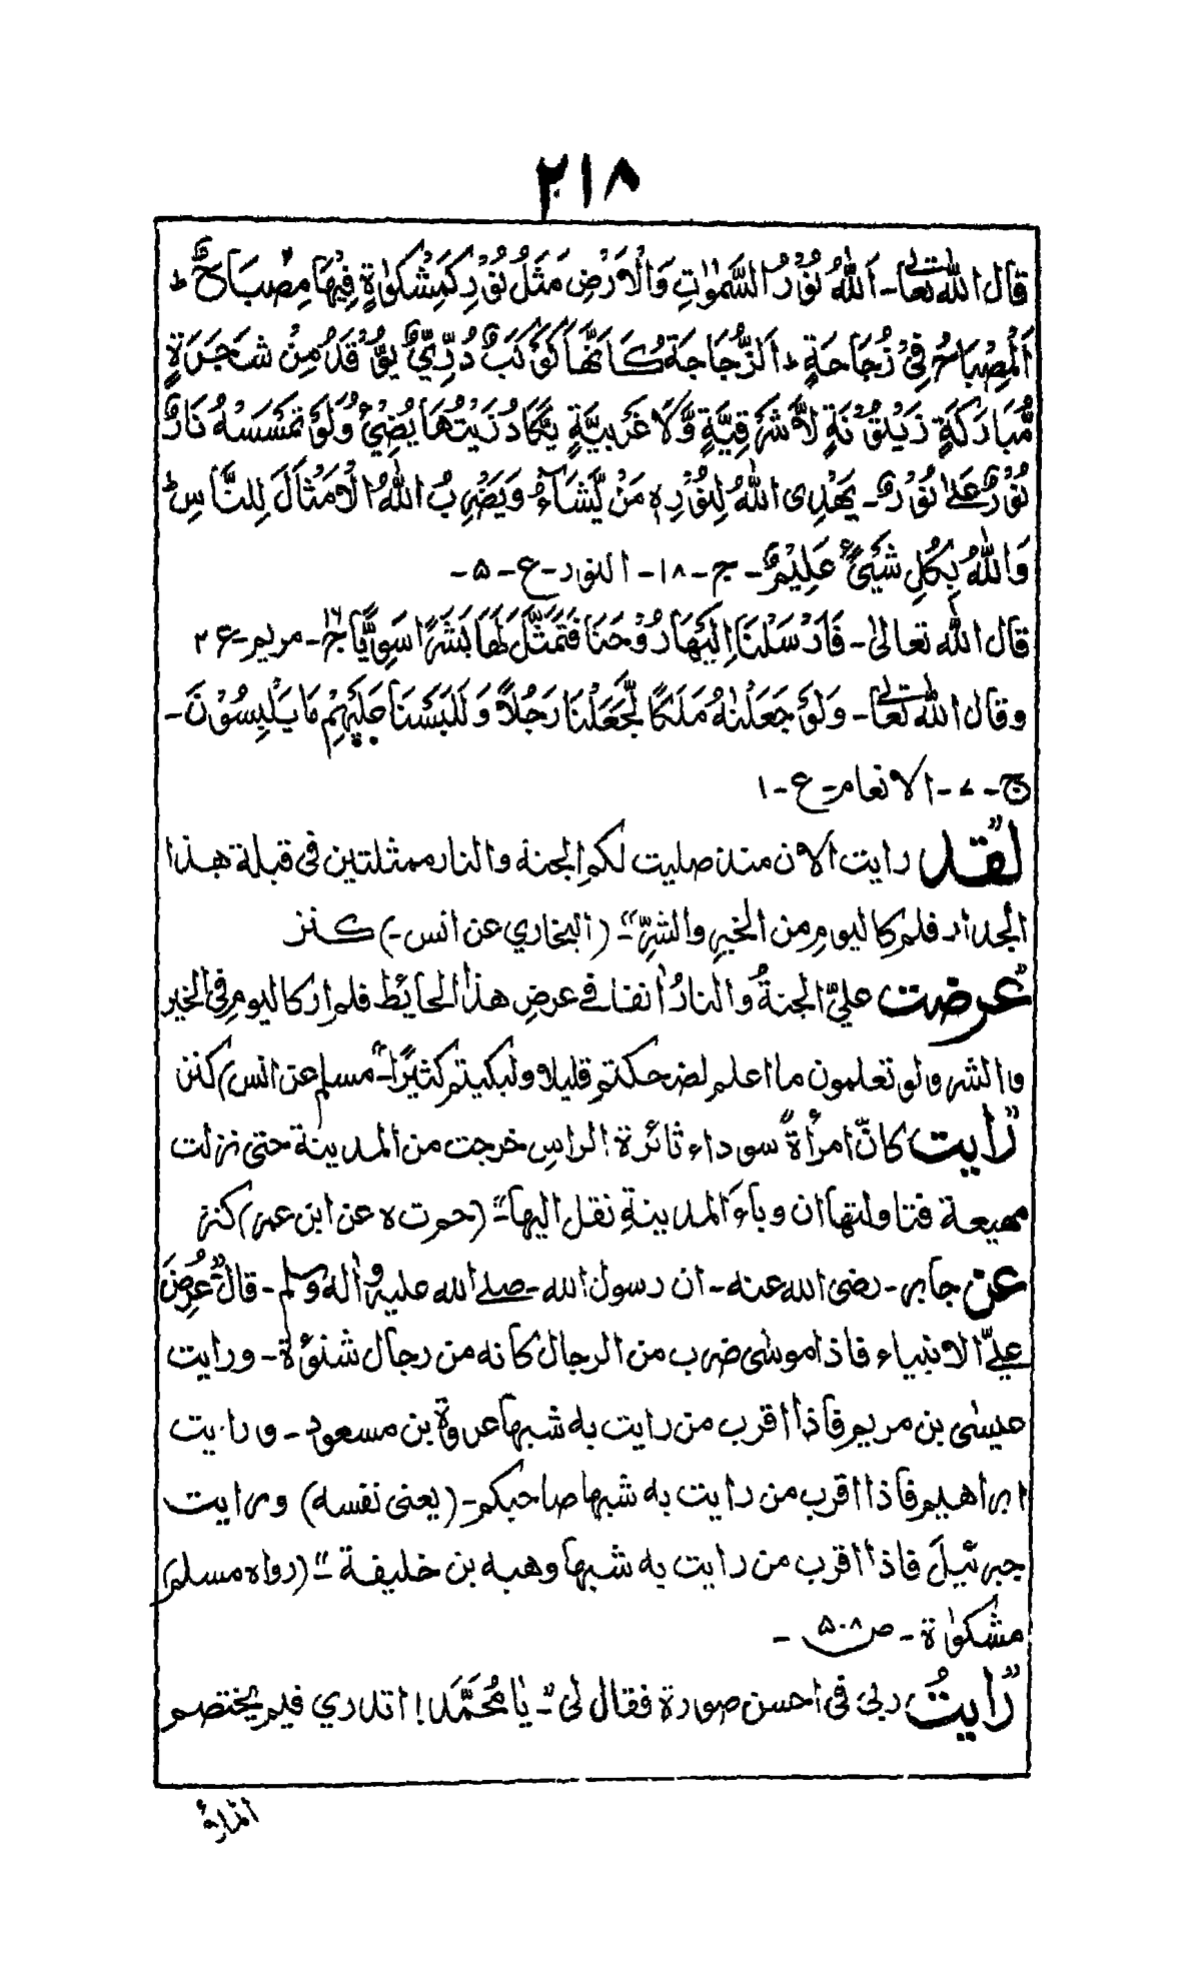 ٢١٨
قال الله تعالی۔ اَللّٰهُ نُوْرُ السَّمٰوٰتِ وَالْاَرْضِ مَثَلُ نُوْرِ كَمِشْكوٰةٍ فِیْهَا مِصْبَاحٌ ط
اَلْمِصْبَاحُ فِیْ زُجَاجَةٍ ط اَلزُّجَاجَةُ كَاَنَّهَا كَوْكَبٌ دُرِّیٌّ یُّوْقَدُ مِنْ شَجَرَةٍ
مُّبَارَكَةٍ زَیْتُوْنَةٍ لَّا شَرْقِیَّةٍ وَّلَا غَرْبِیَّةٍ یَّكَادُ زَیْتُهَا یُضِیْءُ وَلَوْ تَمْسَسْهُ نَارٌ
نُوْرٌ عَلٰی نُوْرٍ۔ یَهْدِی اللّٰهُ لِنُوْرِهٖ مَنْ یَّشَآءُ وَیَضْرِبُ اللّٰهُ الْاَمْثَالَ لِلنَّاسِ ط
وَاللّٰهُ بِكُلِ شَیْیءٍ عَلِیْمٌ۔ ج۔ ١٨۔ النور۔ ع۔ ۵۔
قال الله تعالیٰ۔ فَاَرْسَلْنَا اِلَیْهَا رُوْحَنَا فَتَمَثَّلَ لَهَا بَشَرًا سَوِیًّا ج ١٦۔ مریم۔ ع ٢
وقال الله تعالی۔ وَلَوْ جَعَلْنٰهُ مَلَكًا لَّجَعَلْنَا رَجُلًا وَ لَلَبَسْنَا عَلَیْهِمْ مَا یَلْبِسُوْنَ۔
ج۔ ٧۔ الانعام۔ ع۔ ١
لقد رایت الان منذ صلیت لكم الجنة والنار ممثلتین فی قبلة هذا
الجدار فلم كالیوم من الخیر والشرّ"۔ (البخاري عن انس۔) كنز
عرضت علیّ الجنةُ والنارُ اٰنفا فے عرض هذا الحایٔط فلم ار كالیوم فی الخیر
والشر ولو تعلمون ما اعلم لضحكتم قلیلا ولبكیتم كثیرًا"۔ مسلم عن انس) كنز
رایت كانّ امرأةً سوداء ثائرة الراس خرجت من المدینة حتی نزلت
مهیعة فتاولتها ان وباءَ المدینةِ نقل الیها"۔ (حم ت ہ عن ابن عمر) كنز
عن جابر۔ رضی الله عنه۔ ان رسول الله۔ صلے الله علیه واٰله وسلم۔ قال "عُرِضَ
علیّ الانبیاء فاذا موسٰی ضرب من الرجال كانه من رجال شنؤة۔ ورایت
عیسٰی بن مریم فاذا اقرب من رایت به شبها عروة بن مسعود۔ ورایت
ابراهیم فاذا اقرب من رایت به شبها صاحبكم۔ (یعنی نفسه) ورایت
جبرئیلَ فاذا اقرب من رایت به شبها وهبه بن خلیفة"۔ (رواه مسلم)
مشكوٰة۔ ص ۵٠٨۔
رایتُ ربی فی احسن صورة فقال لی"۔ یَا مُحَمَّد! اتدري فیم یختصم
الملاؤ